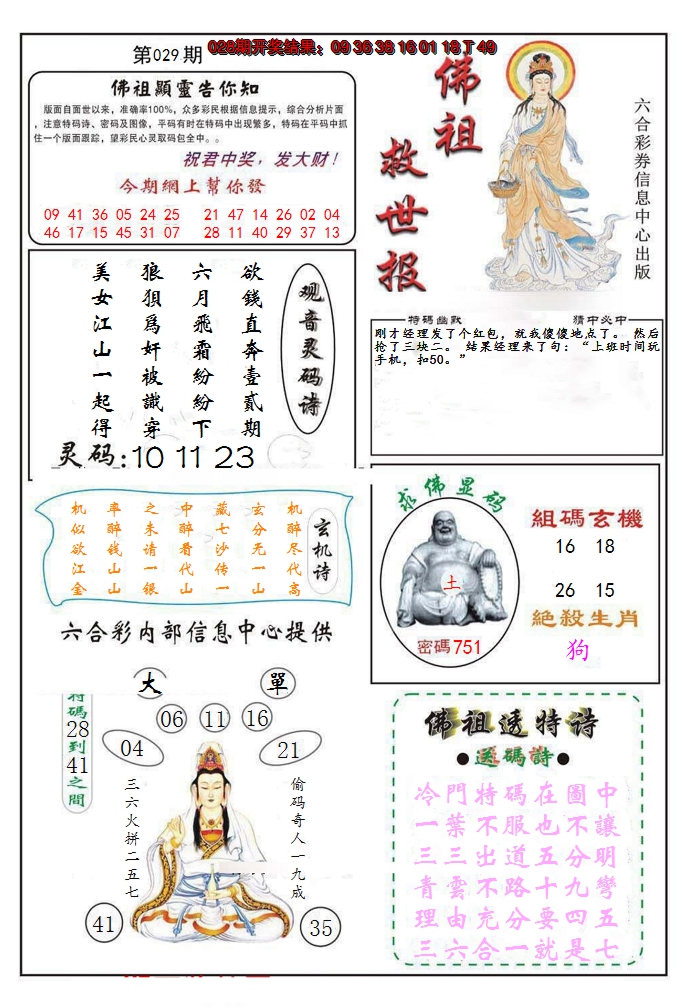 第029期
028期开奖结果：09 36 38 16 01 18 T 49
佛祖顯靈告你知
版面自面世以来，准确率100%，众多彩民根据信息提示，综合分析片面
，注意特码诗、密码及图像，平码有时在特码中出现繁多，特码在平码中抓
住一个版面跟踪，望彩民心灵取码包全中。。
祝君中奖，发大财！
今期網上幫你發
09 41 36 05 24 25 21 47 14 26 02 04
46 17 15 45 31 07 28 11 40 29 37 13
佛祖救世报
六合彩券信息中心出版
观音灵码诗
欲錢直奔壹貳期
六月飛霜紛紛下
狼狽爲奸被識穿
美女江山一起得
灵码:10 11 23
特碼幽默
猜中必中
刚才经理发了个红包，就我傻傻地点了。 然后
抢了三块二。 结果经理来了句：“上班时间玩
手机，扣50。”
玄机诗
机醉尽代高
玄分无一山
藏七沙传一
中醉看代山
之未请一银
率醉钱山山
机似欲江金
六合彩内部信息中心提供
求佛显码
土
密碼751
組碼玄機
16 18
26 15
絶殺生肖
狗
大
單
特碼28到41之間
06 11 16
04
21
三六火拼二五七
偷码奇人一九成
41
35
佛祖透特诗
●送碼詩●
冷門特碼在圖中
一葉不服也不讓
三三出道五分明
青雲不路十九彎
理由充分要四五
三六合一就是七